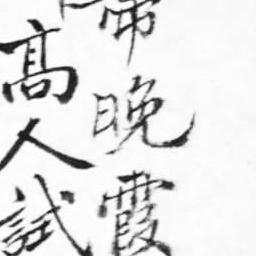 晚霞
高人試